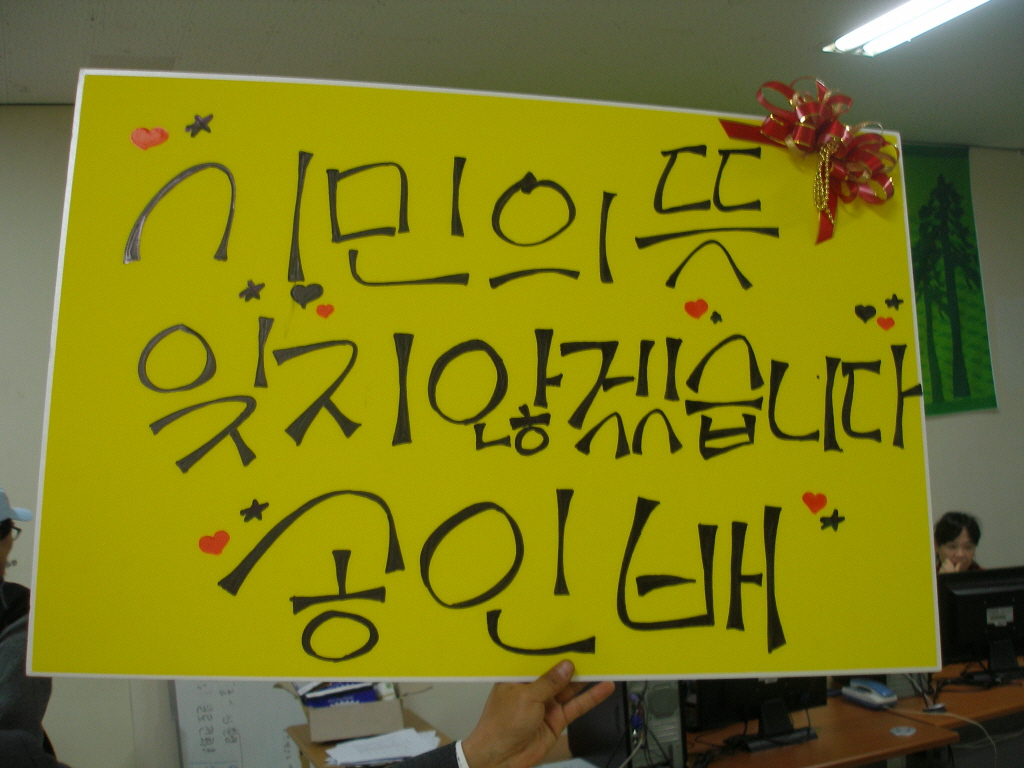 시민의 뜻
잊지않겠습니다
송인배